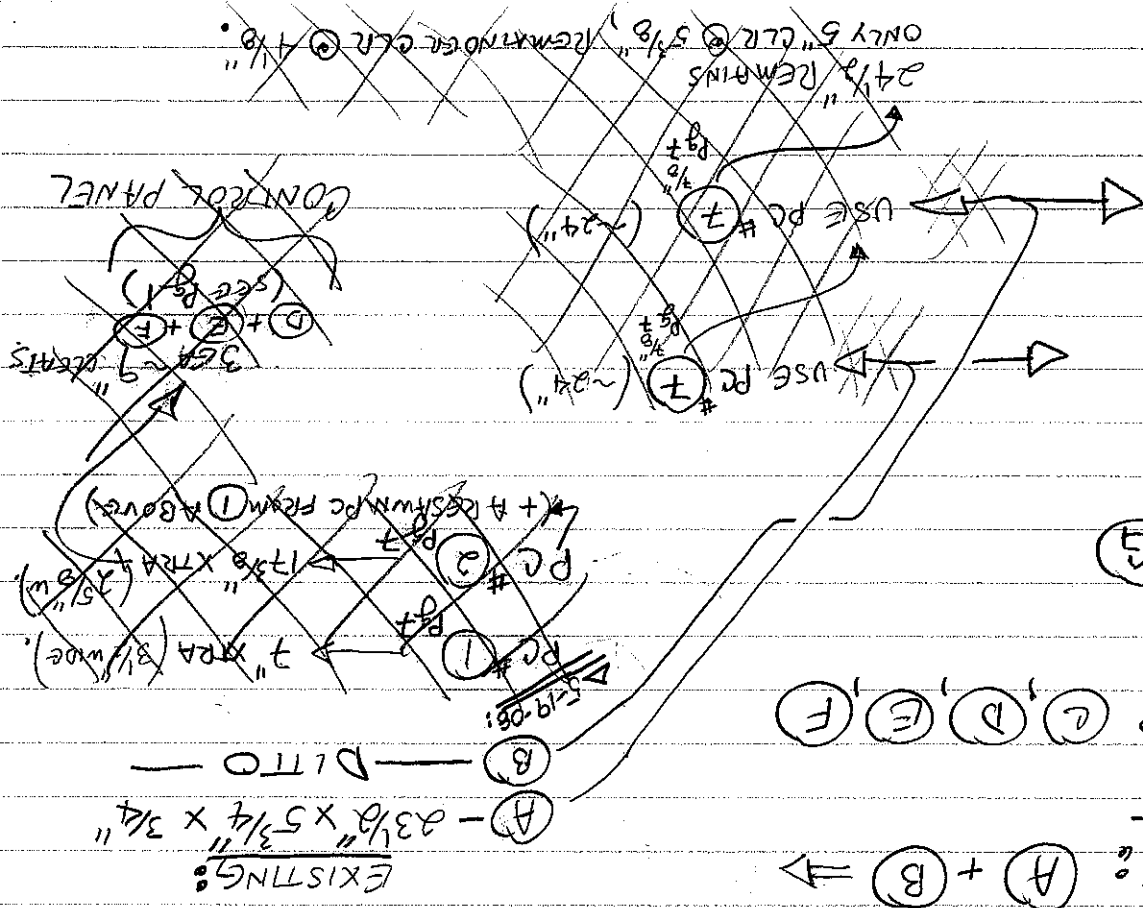 : (A) + (B) ⇒
EXISTING:
(A) - 23 1/2" x 5 3/4" x 3/4"
(B) — DITTO —
(C), (D), (E), (F)
5-19-08:
PC # (1) Pg 7 → 7" XTRA (3 1/2" WIDE).
PC # (2) Pg 7 → 17 3/8" XTRA (2 5/8" W).
(+ A RESAWN PC FROM (1) ABOVE)
USE PC # (7) (~24")
7/8" Pg 7
3 EA ~9" CLEATS
(D) + (E) + (F)
(SEE Pg 1)
CONTROL PANEL
USE PC # (7) (~24")
7/8" Pg 7
24 1/2" REMAINS
ONLY 5" CLR @ 5 3/8", REMAINDER CLR @ 4 1/8".